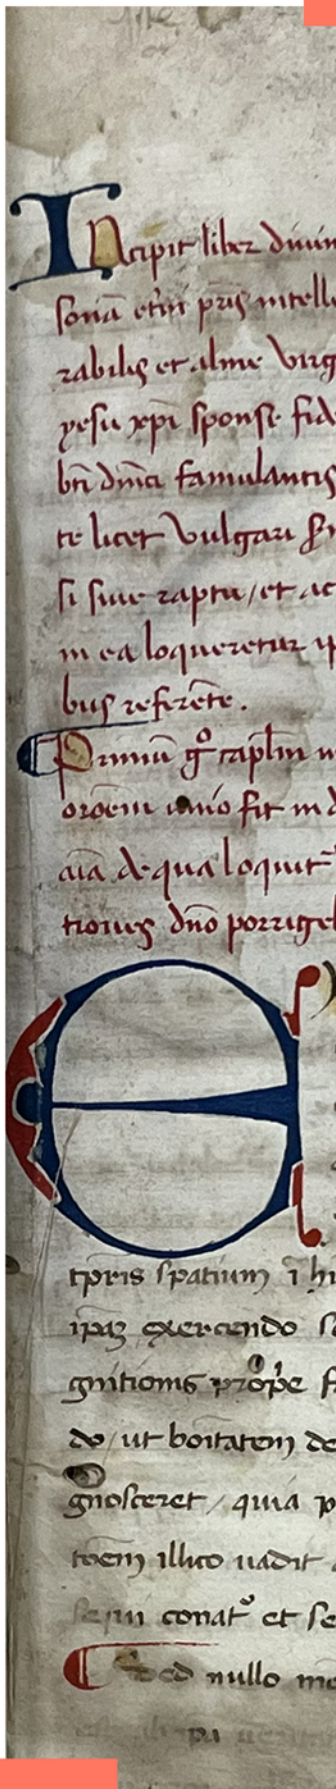 Incipit liber diuin
sonā et in prīs intelle
rabilis et alme virg
yesu xp̄i sponse fid
bt̄i dn̄ici famulantis
te licet vulgari s̄
si siue rapta / et ac
in ea loqueretur ip
bus referēte.
Primū gͦ cap̄lm
or̄oēm unio fit in d
aīa de qua loquit̄
tionus dn̄o porrige
E
tpris spatium ī hu
ipaʒ exercendo s
gnitionis prop̄e s
do / ut boītatem de
gnosceret / quia p
toēm illico uadit
sequi conat᷑ et se
Sed nullo mō